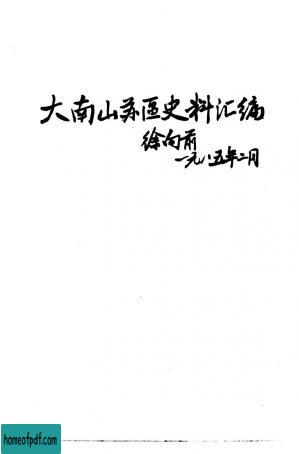 大南山苏区史料汇编
徐向前
一九八五年二月
homeofpdf.com